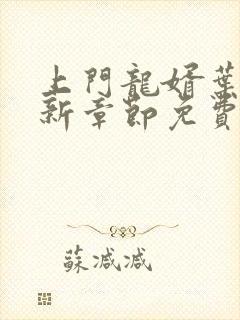 上門龍婿葉
新章節免費
蘇減減